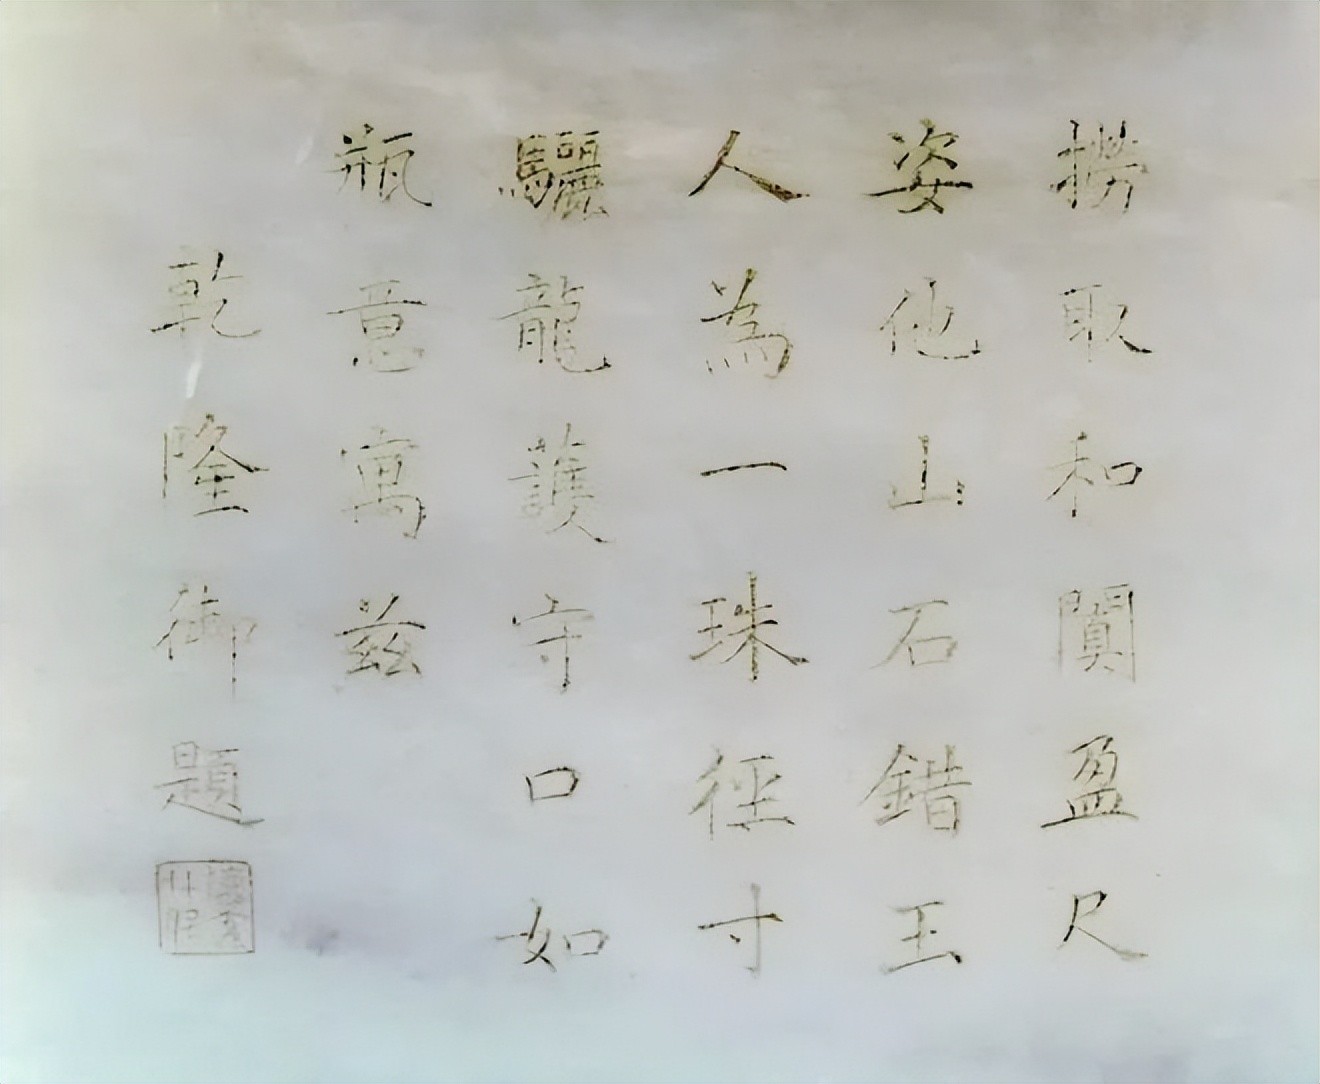 撈取和闐盈尺
姿他山石錯玉
人為一珠徑寸
驪龍護守口如
瓶意寓兹
乾隆御題